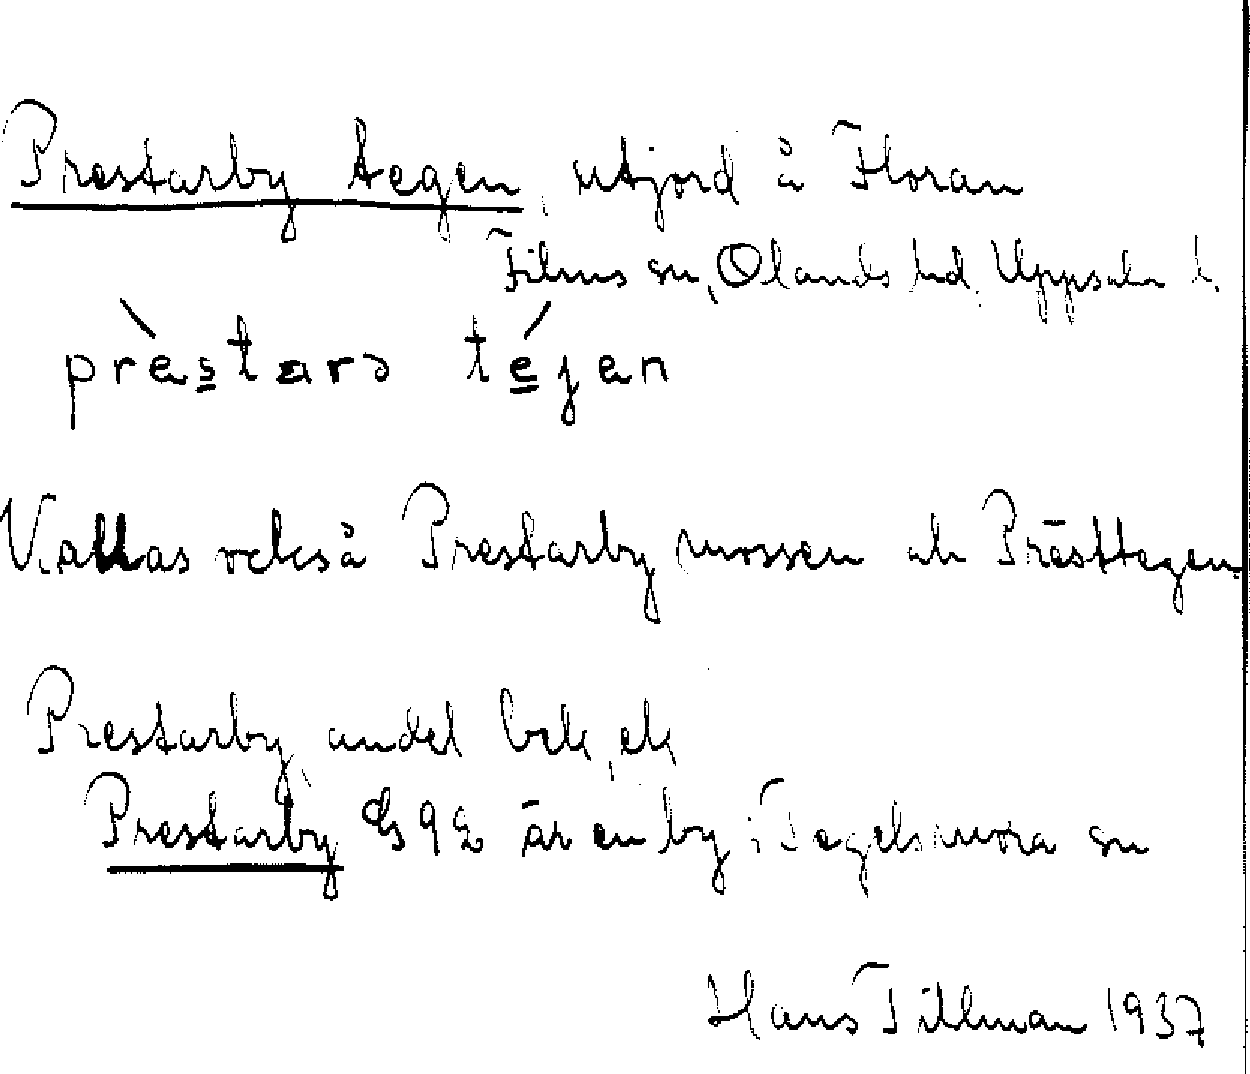 Prestarby tegen, utjord å Floran
Films sn, Olands hd. Uppsala l.
prèstarɔ téjen
Kallas också Prestarby mossen ell Prästtegen
Prestarby, andel
Prestarby är en by i Tegelsmora sn
Hans Tillman 1937